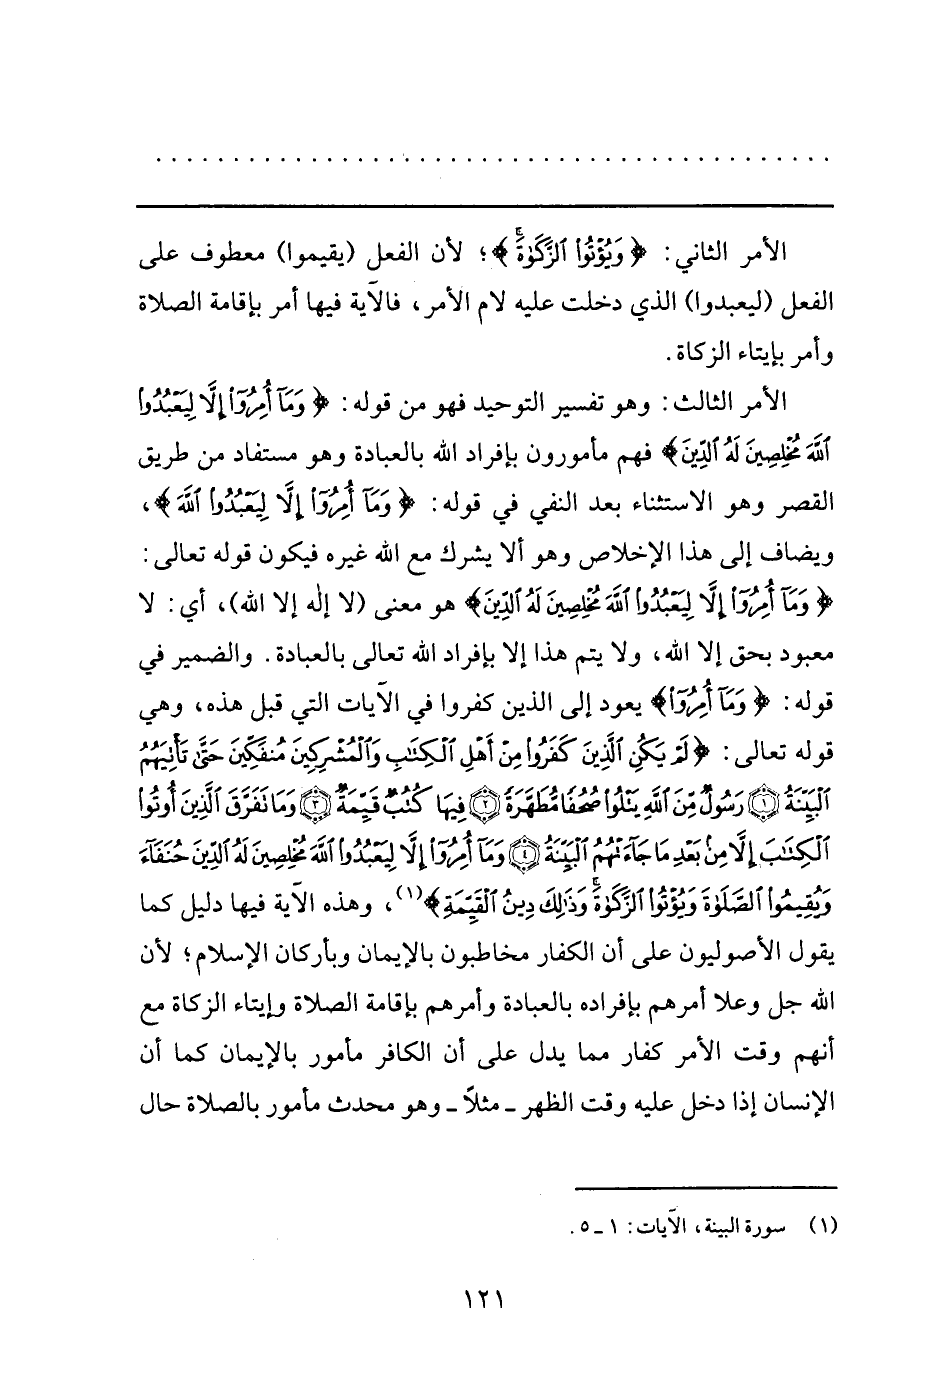 . . . . . . . . . . . . . . . . . . . . . . . . . . . . . . . . . . . . . . . . . . .
الأمر الثاني: ﴿ وَيُؤْتُوا۟ ٱلزَّكَوٰةَۚ ﴾؛ لأن الفعل (يقيموا) معطوف على
الفعل (ليعبدوا) الذي دخلت عليه لام الأمر، فالآية فيها أمر بإقامة الصلاة
وأمر بإيتاء الزكاة.
الأمر الثالث: وهو تفسير التوحيد فهو من قوله: ﴿ وَمَآ أُمِرُوٓا۟ إِلَّا لِيَعْبُدُوا۟
ٱللَّهَ مُخْلِصِينَ لَهُ ٱلدِّينَ﴾ فهم مأمورون بإفراد الله بالعبادة وهو مستفاد من طريق
القصر وهو الاستثناء بعد النفي في قوله: ﴿ وَمَآ أُمِرُوٓا۟ إِلَّا لِيَعْبُدُوا۟ ٱللَّهَ ﴾،
ويضاف إلى هذا الإخلاص وهو ألا يشرك مع الله غيره فيكون قوله تعالى:
﴿ وَمَآ أُمِرُوٓا۟ إِلَّا لِيَعْبُدُوا۟ ٱللَّهَ مُخْلِصِينَ لَهُ ٱلدِّينَ﴾ هو معنى (لا إلٰه إلا الله)، أي: لا
معبود بحق إلا الله، ولا يتم هذا إلا بإفراد الله تعالى بالعبادة. والضمير في
قوله: ﴿ وَمَآ أُمِرُوٓا۟﴾ يعود إلى الذين كفروا في الآيات التي قبل هذه، وهي
قوله تعالى: ﴿لَمْ يَكُنِ ٱلَّذِينَ كَفَرُوا۟ مِنْ أَهْلِ ٱلْكِتَٰبِ وَٱلْمُشْرِكِينَ مُنفَكِّينَ حَتَّىٰ تَأْتِيَهُمُ
ٱلْبَيِّنَةُ ۝١ رَسُولٌ مِّنَ ٱللَّهِ يَتْلُوا۟ صُحُفًا مُّطَهَّرَةً ۝٢ فِيهَا كُتُبٌ قَيِّمَةٌ ۝٣ وَمَا تَفَرَّقَ ٱلَّذِينَ أُوتُوا۟
ٱلْكِتَٰبَ إِلَّا مِنۢ بَعْدِ مَا جَآءَتْهُمُ ٱلْبَيِّنَةُ ۝٤ وَمَآ أُمِرُوٓا۟ إِلَّا لِيَعْبُدُوا۟ ٱللَّهَ مُخْلِصِينَ لَهُ ٱلدِّينَ حُنَفَآءَ
وَيُقِيمُوا۟ ٱلصَّلَوٰةَ وَيُؤْتُوا۟ ٱلزَّكَوٰةَۚ وَذَٰلِكَ دِينُ ٱلْقَيِّمَةِ﴾(١)، وهذه الآية فيها دليل كما
يقول الأصوليون على أن الكفار مخاطبون بالإيمان وبأركان الإسلام؛ لأن
الله جل وعلا أمرهم بإفراده بالعبادة وأمرهم بإقامة الصلاة وإيتاء الزكاة مع
أنهم وقت الأمر كفار مما يدل على أن الكافر مأمور بالإيمان كما أن
الإنسان إذا دخل عليه وقت الظهر ـ مثلاً ـ وهو محدث مأمور بالصلاة حال
(١) سورة البينة، الآيات: ١ ـ ٥.
١٢١